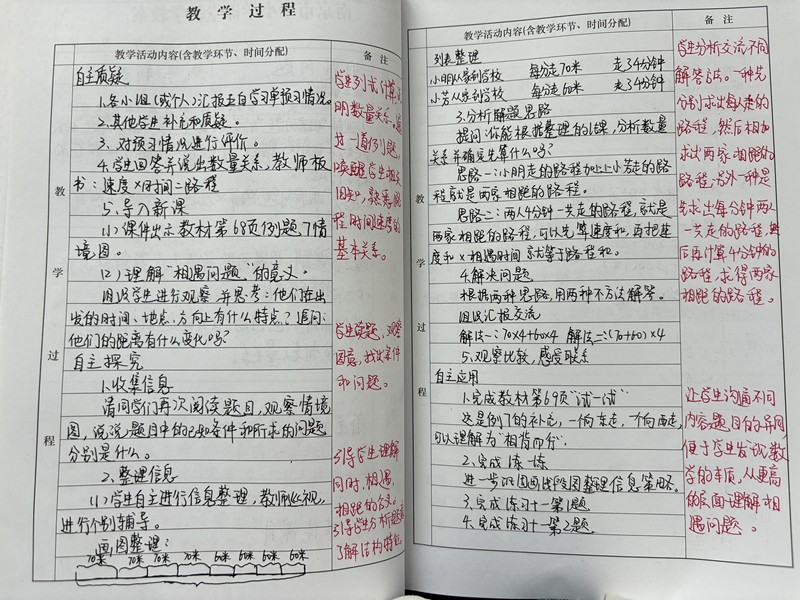 教学过程
教学活动内容(含教学环节、时间分配)
备注
自主质疑
1.各小组(或个人)汇报五自学习单预习情况。
2.其他学生补充和质疑。
3.对预习情况进行评价。
4.学生回答并说出数量关系,教师板
书:速度×时间=路程
5.导入新课
(1)课件出示教材第68页例题7情
境图。
(2)理解"相遇问题"的意义。
组织学生进行观察,并思考:他们在出
发的时间、地点、方向上有什么特点?追问:
他们的距离有什么变化吗?
自主探究
1.收集信息
请同学们再次阅读题目,观察情境
图,说说题目中的已知条件和所求的问题
分别是什么。
2.整理信息
(1)学生自主进行信息整理,教师巡视,
进行个别辅导。
画图整理:
70米 70米 70米 70米 60米 60米 60米 60米
教学过程
学生列式计算,说
明数量关系,
过一道例题,
唤醒学生相关
旧知,熟悉路
程时间速度的
基本关系。
学生读题,观察
图意,找出条件
和问题。
引导学生理解
同时,相遇,
相距的含义。
引导学生分析题意
了解结构特征
教学活动内容(含教学环节、时间分配)
备注
列表整理
小明从家到学校 每分走70米 走了4分钟
小芳从家到学校 每分走60米 走了4分钟
3.分析解题思路
提问:你能根据整理的结果,分析数量
关系并确定先算什么吗?
思路一:小明走的路程加上小芳走的路
程就是两家相距的路程。
思路二:两人4分钟一共走的路程,就是
两家相距的路程,可以先算速度和,再把速
度和×相遇时间就等于路程和。
4.解决问题
根据两种思路,用两种不方法解答。
组织汇报交流
解法一:70×4+60×4 解法二:(70+60)×4
5.观察比较,感受联系
自主应用
1.完成教材第69页"试一试"
这是例7的补充,一个向东走,一个向西走,
可以理解为"相背而行".
2.完成练一练
进一步巩固画线段图整理信息策略。
3.完成练习十一第1题
4.完成练习十一第2题
教学过程
学生分析交流不同
解答方法。一种先
分别求出每人走的
路程,然后相加
求出两家相距的
路程,另外一种是
先求出每分钟两人
一共走的路程,然
后再计算4分钟的
路程,求得两家
相距的路程。
让学生沟通不同
内容题目的异同,
便于学生发现数
学的本质,从更高
的层面理解相
遇问题。